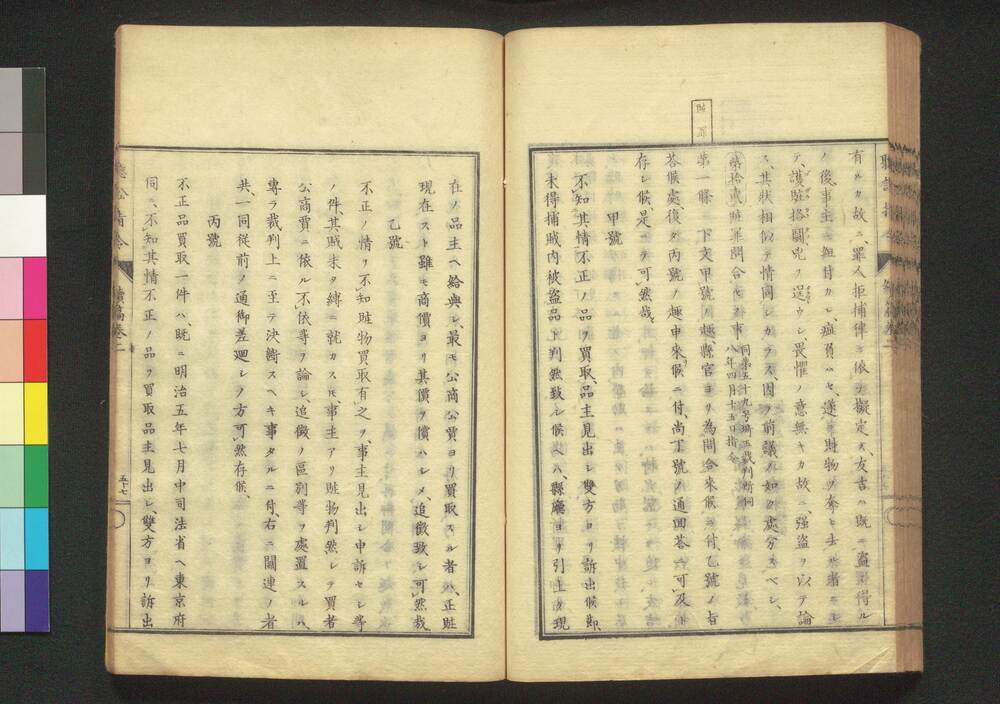 贓罪
有ルカ故ニ、罪人拒捕律ニ依テ擬定ス、友吉ハ既ニ盗ヲ得ル
ノ後事主ニ組付カレ、疵負ハセ、遂ニ財物ヲ奪ヒ去ル者ニシ
テ、護贓格鬪兇ヲ逞ウシ、畏懼ノ意無キカ故ニ、強盗ヲ以テ論
ス、其状相似テ情同シカラス、因テ前議ノ如ク處分スベシ、
第拾貳贓罪問合セノ事
同第五十九号埼玉裁判所伺
八年四月十五日指令
第一條 下文甲號ノ趣、縣官ヨリ為問合來候ニ付、乙號ノ旨
答候處、復タ丙號ノ趣申來候ニ付、尚丁號ノ通回答ニ可及ト
存シ候、是ニテ可然哉、
甲號
不知其情不正ノ品ヲ買取、品主見出シ、雙方ヨリ訴出候節、
未得捕賊内被盗品ト判然致シ候ヘハ、縣廳ヨリ引上ケ、現
在ノ品主ヘ給與シ、最モ公商公賈ヨリ買取スル者ハ、正贓
現在スト雖モ商價ヨリ其價ヲ償ハシメ、追徴致シ可然哉、
乙號
不正ノ情ヲ不知贓物買取有之ヲ、事主見出シ申訴セシ等
ノ件、其賊未タ縛ニ就カスト𪜈、事主アリ贓物判然シテ買者
公商賈ニ依ル不依等ヲ論シ、追徴ノ區別等ヲ處置スルハ、
專ラ裁判上ニ至テ決斷スヘキ事タルニ付、右ニ關連ノ者
共、一同從前ノ通御差廻シノ方可然存候、
丙號
不正品買取一件ハ、既ニ明治五年七月中司法省ヘ東京府
伺ニ、不知其情不正ノ品ヲ買取品主見出シ、雙方ヨリ訴出
五十七